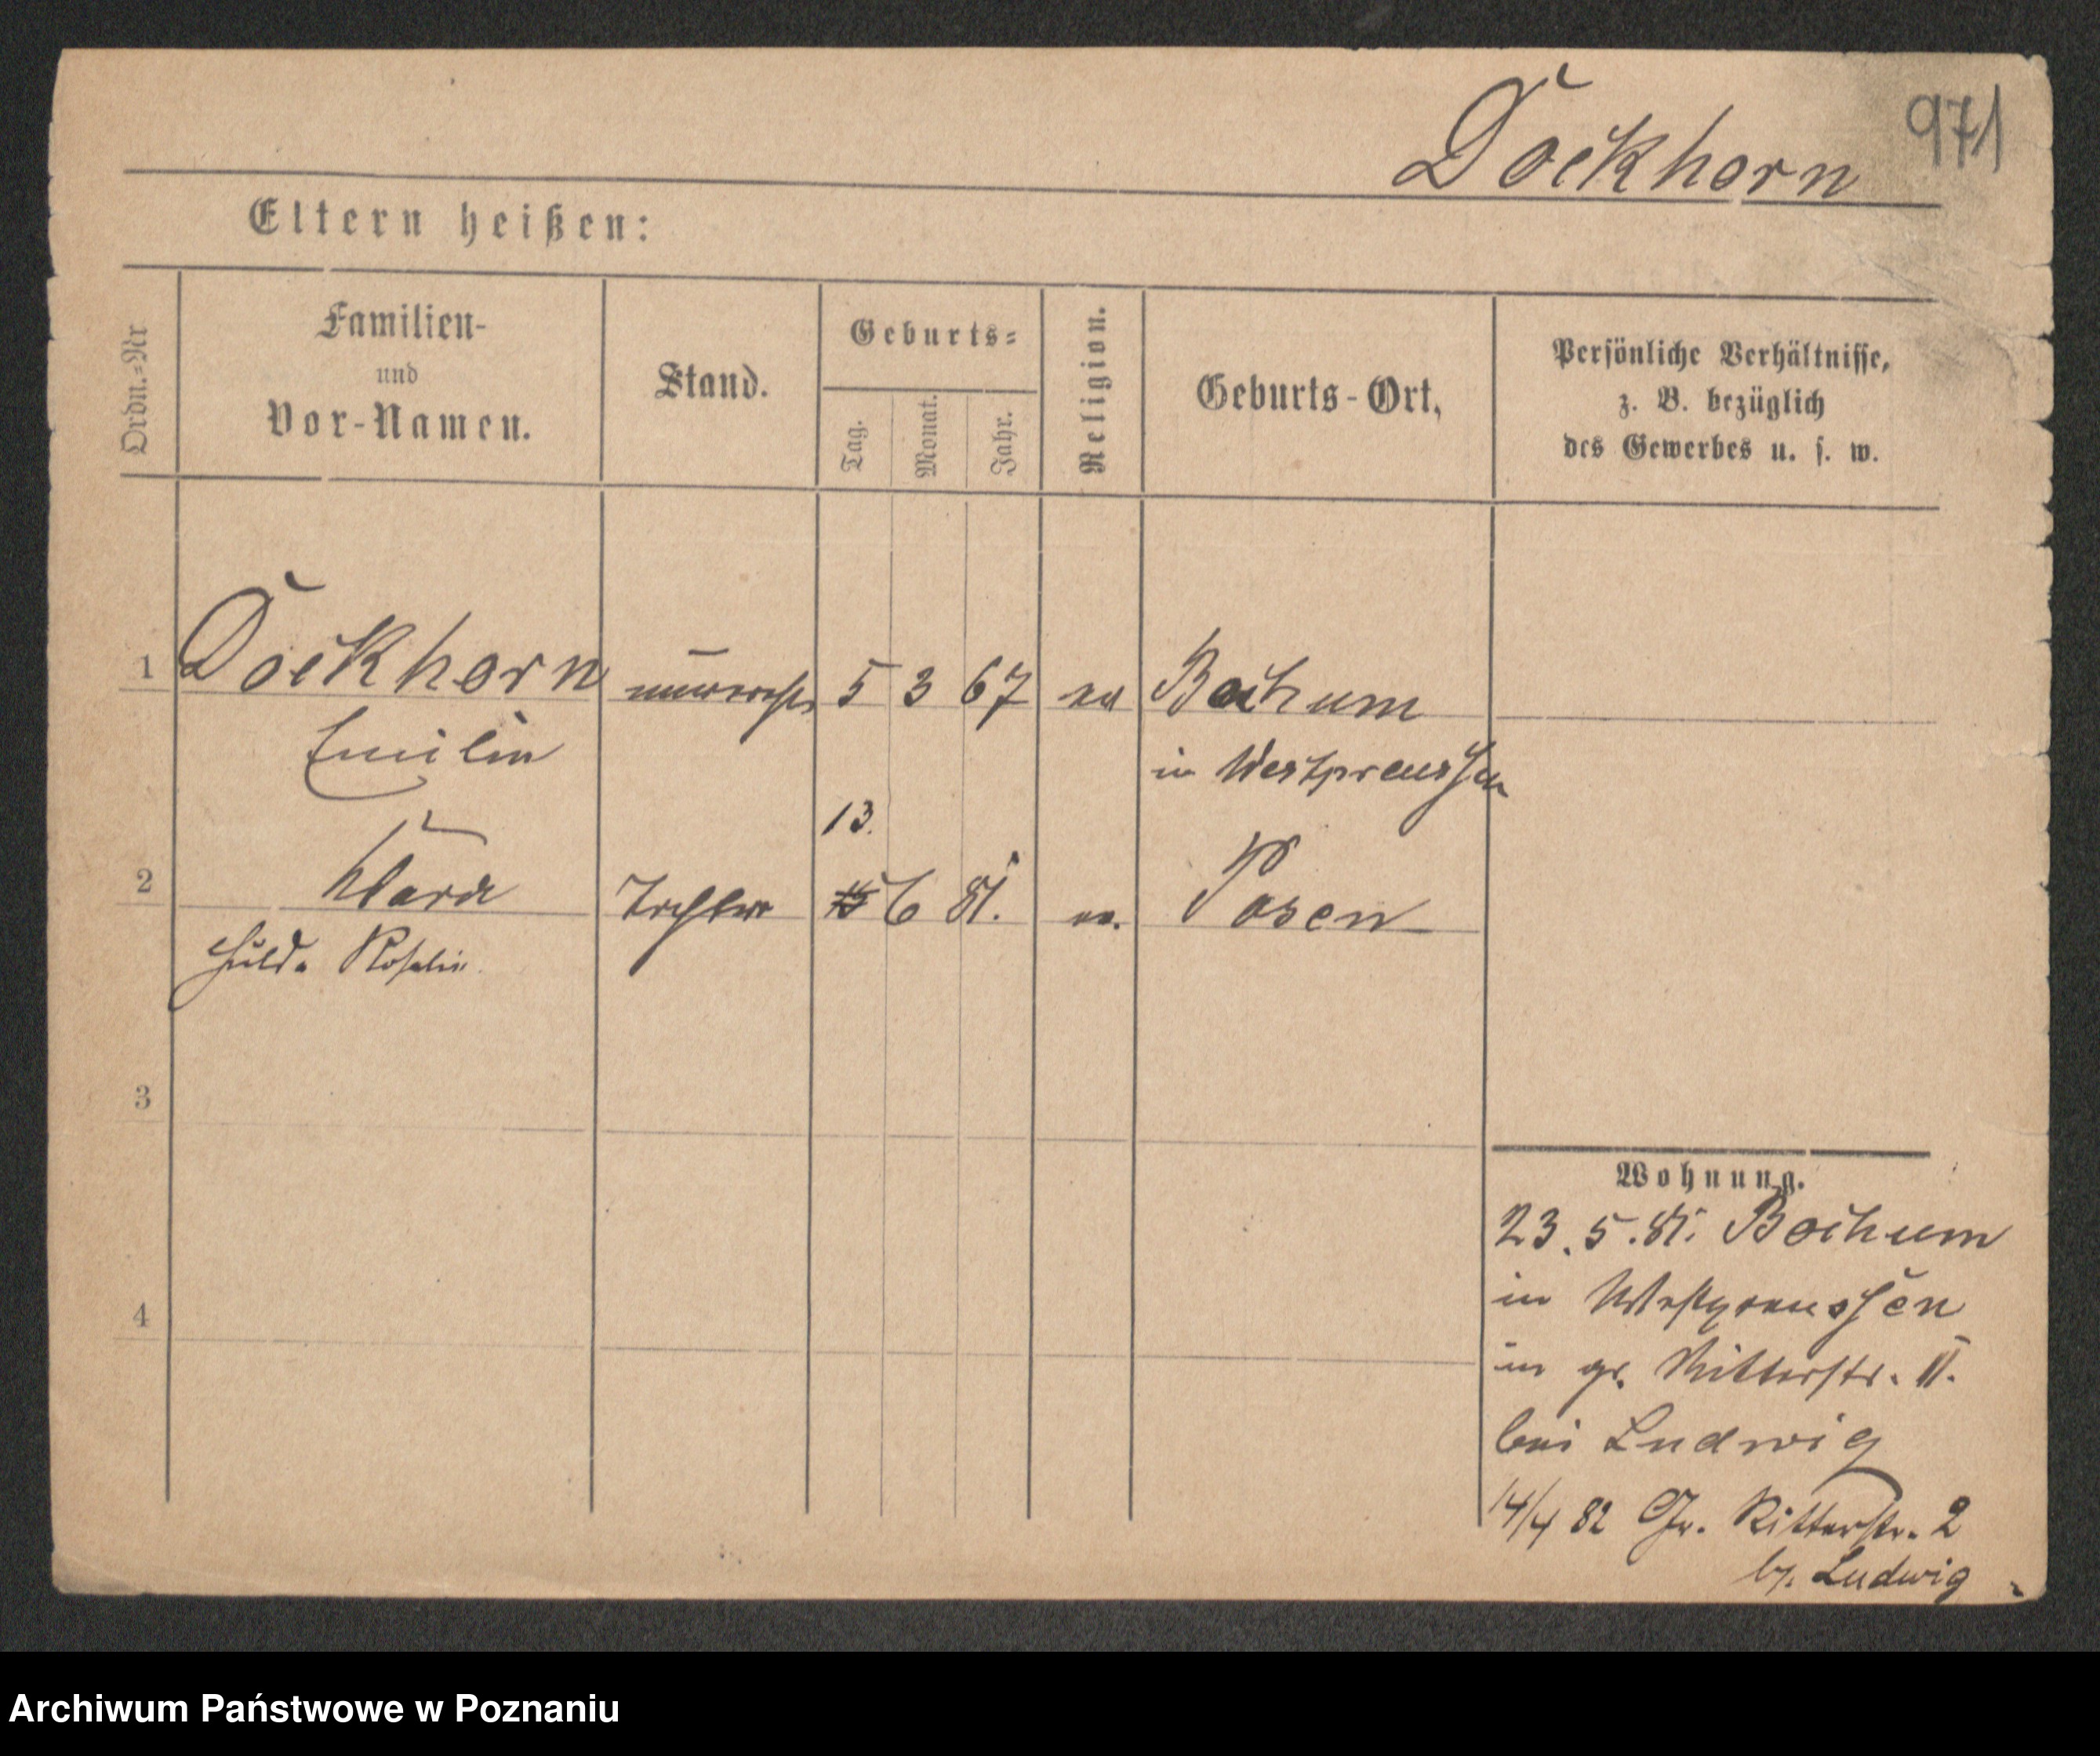 971
Dockhorn
Eltern heißen:
Ordn.-Nr
Familien-
und
Vor-Namen.
Stand.
Geburts-
Tag.
Monat.
Jahr.
Religion.
Geburts-Ort,
Persönliche Verhältnisse,
z. B. bezüglich
des Gewerbes u. s. w.
1 Dockhorn 5 3 67 ev Bochum
Emilie
in Westpreussen
13.
2 Klara Tochter 6 81. ev. Posen
Hulda Rosalie
3
4
Wohnung.
23.5.81. Bochum
in Westpreussen
in gr. Ritterstr. II.
bei Ludwig
14/4 82 Gr. Ritterstr. 2
by. Ludwig
Archiwum Państwowe w Poznaniu